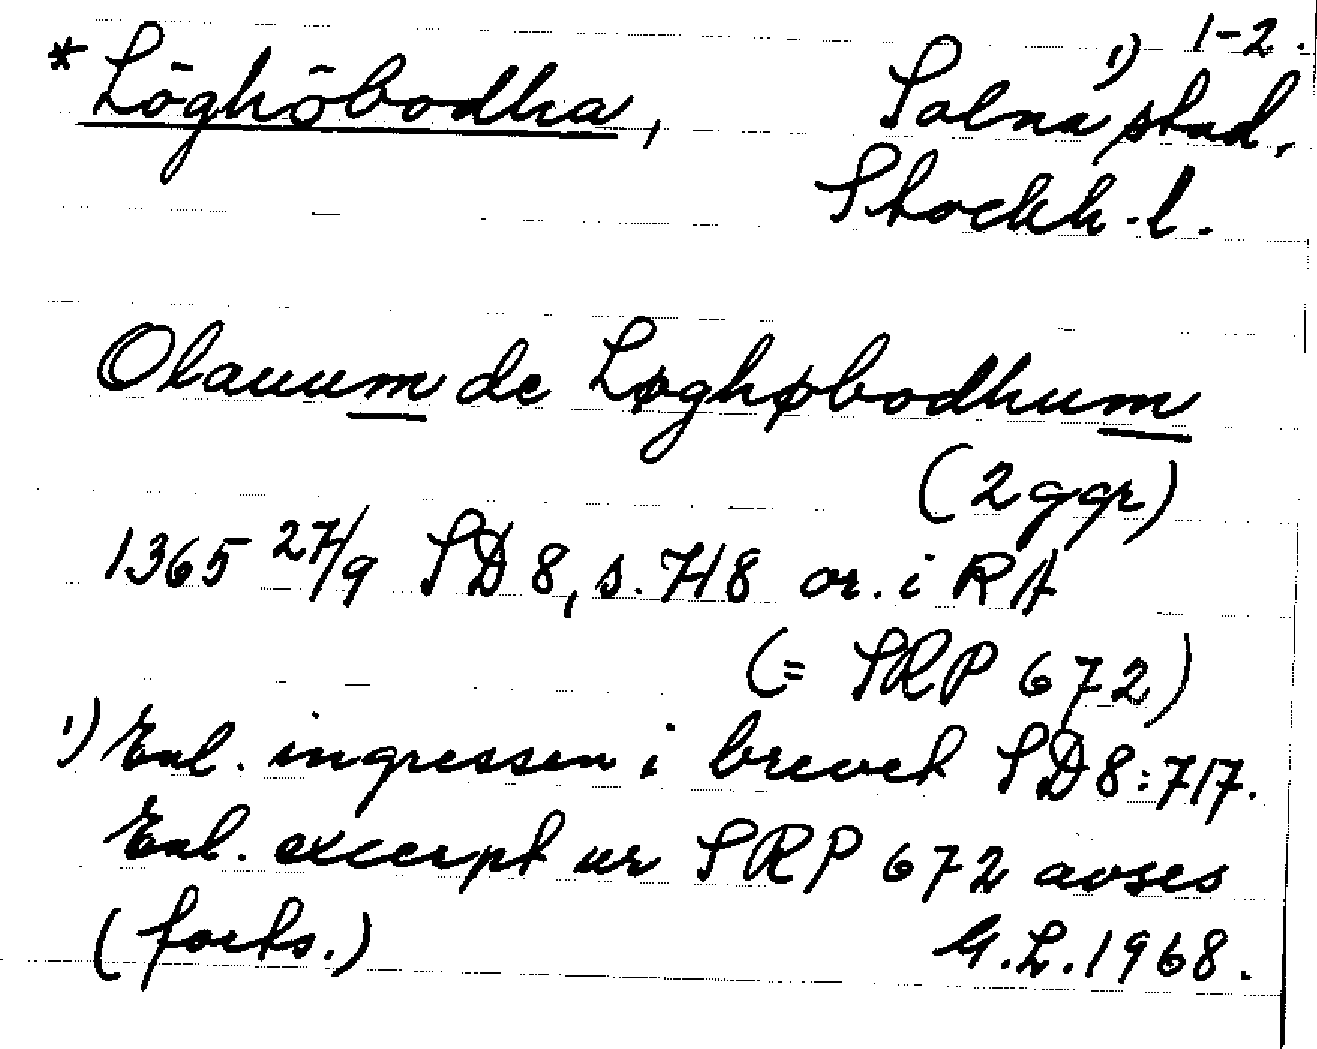 1-2.
*Lōghōbodha, Solna¹⁾ stad,
Stockh. l.
Olauum de Løghøbodhum
(2 ggr)
1365 27/9 SD 8, s. 718 or. i RA
(= SRP 672)
¹⁾ Enl. ingressen i brevet SD 8:717.
Enl. excerpt ur SRP 672 avses
(forts.) G.L. 1968.